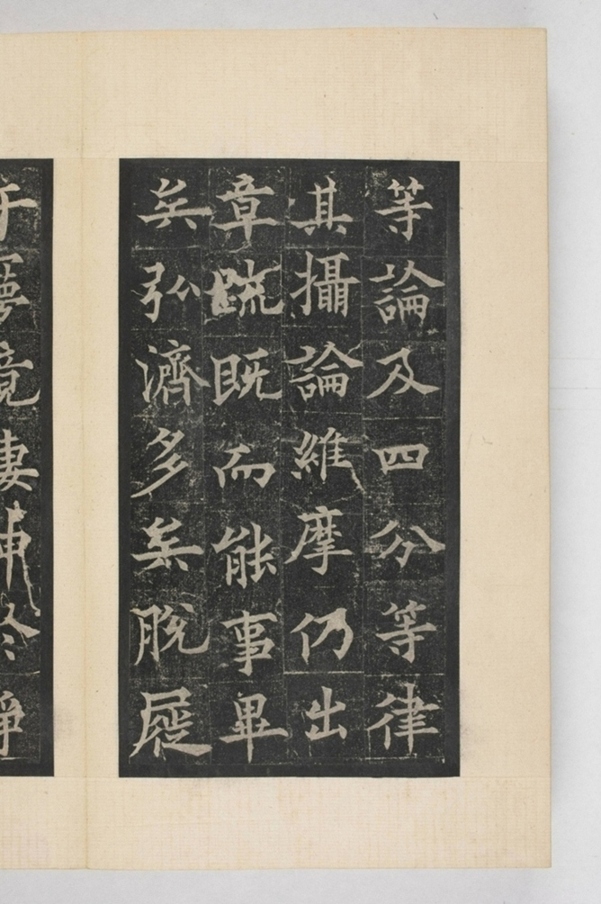 等論及四分等律
其攝論維摩仍出
章疏既而能事畢
矣弘濟多矣脫屣